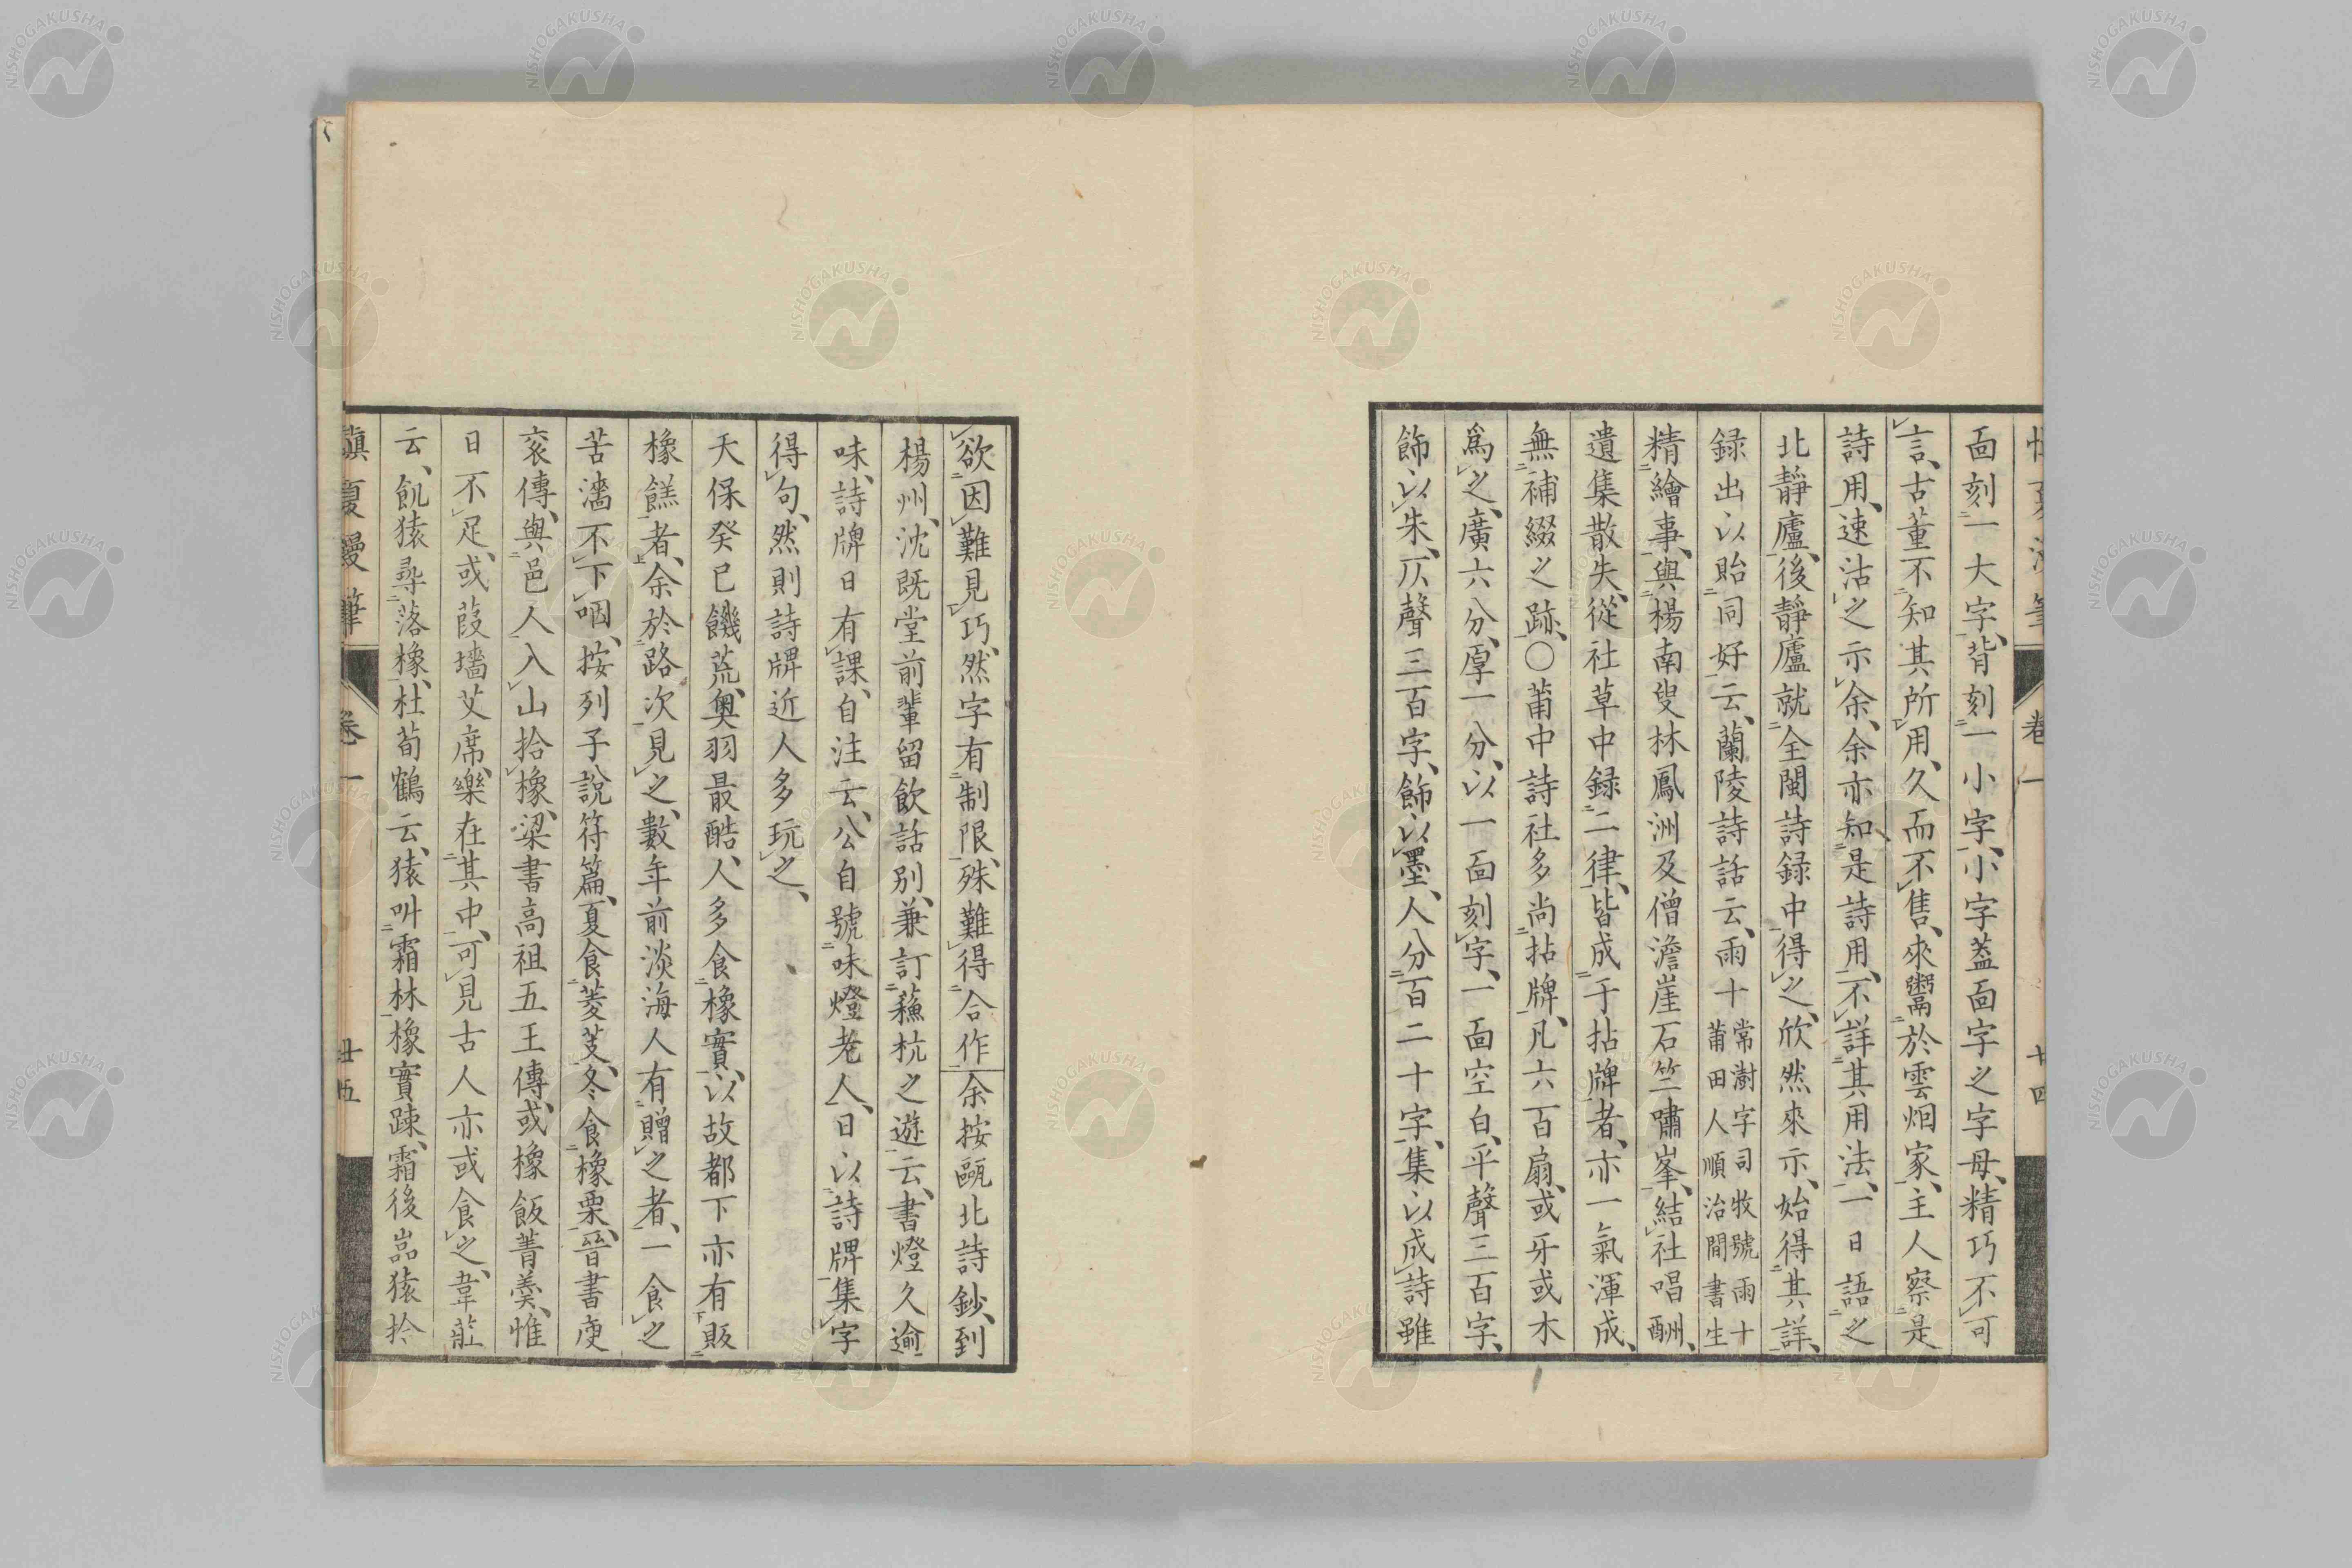 面刻一大字、背刻一小字、小字蓋面字之字母、精巧不可
言、古董不知其所用、久而不售、來鬻於雲烟家、主人察是
詩用、速沽之示余、余亦知是詩用、不詳其用法、一日語之
北靜廬、後靜廬就全閩詩録中得之、欣然來示、始得其詳、
録出以貽同好云、蘭陵詩話云、雨十常澍字司牧號雨十莆田人順治間書生
精繪事、與楊南叟林鳳洲及僧澹崖石竺嘯峯、結社唱酬、
遺集散失、從社草中録二律、皆成于拈牌者、亦一氣渾成、
無補綴之跡、〇莆中詩社多尚拈牌、凡六百扇、或牙或木
爲之、廣六分、厚一分、以一面刻字、一面空白、平聲三百字、
飾以朱、仄聲三百字、飾以墨、人分百二十字、集以成詩雖
卷一
廿四
欲因難見巧、然字有制限、殊難得合作余按甌北詩鈔、到
楊州、沈既堂前輩留飲話別、兼訂蘓杭之遊云、書燈久逾
味、詩牌日有課、自注云、公自號味燈老人、日以詩牌集字
得句、然則詩牌近人多玩之、
天保癸巳饑荒、奧羽最酷、人多食橡實、以故都下亦有販
橡餻者、余於路次見之、數年前淡海人有贈之者、一食之
苦濇不下咽、按列子說符篇、夏食菱芰、冬食橡栗、晉書庾
袞傳、與邑人入山拾橡、梁書高祖五王傳、或橡飯菁羹、惟
日不足、或葭墻艾席、樂在其中、可見古人亦或食之、韋莊
云、飢猿尋落橡、杜荀鶴云、猿叫霜林橡實踈、霜後嵓猿拎
夏漫筆
卷一
廿五
NISHOGAKUSHA